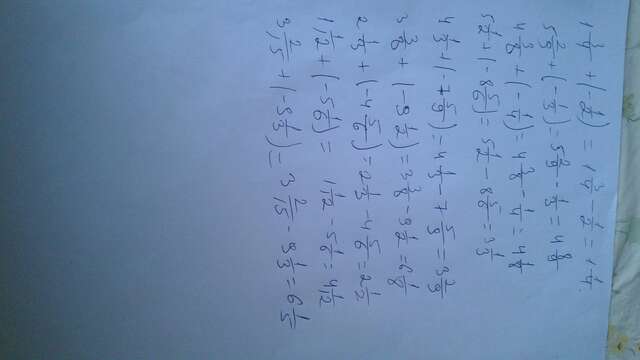 1 3/4 + (- 1/2) = 1 3/4 - 1/2 = 1 1/4.
5 2/9 + (- 1/3) = 5 2/9 - 1/3 = 4 8/9
4 3/8 + (- 1/4) = 4 3/8 - 1/4 = 4 1/8
5 1/2 + (- 8 5/6) = 5 1/2 - 8 5/6 = 3 1/3
4 1/3 + (- 7 5/9) = 4 1/3 - 7 5/9 = 3 2/9
3 3/8 + (- 9 1/2) = 3 3/8 - 9 1/2 = 6 1/8
2 1/3 + (- 4 5/6) = 2 1/3 - 4 5/6 = 2 1/2
1 1/12 + (- 5 1/6) = 1 1/12 - 5 1/6 = 4 1/12
3 2/15 + (- 9 1/3) = 3 2/15 - 9 1/3 = 6 1/5